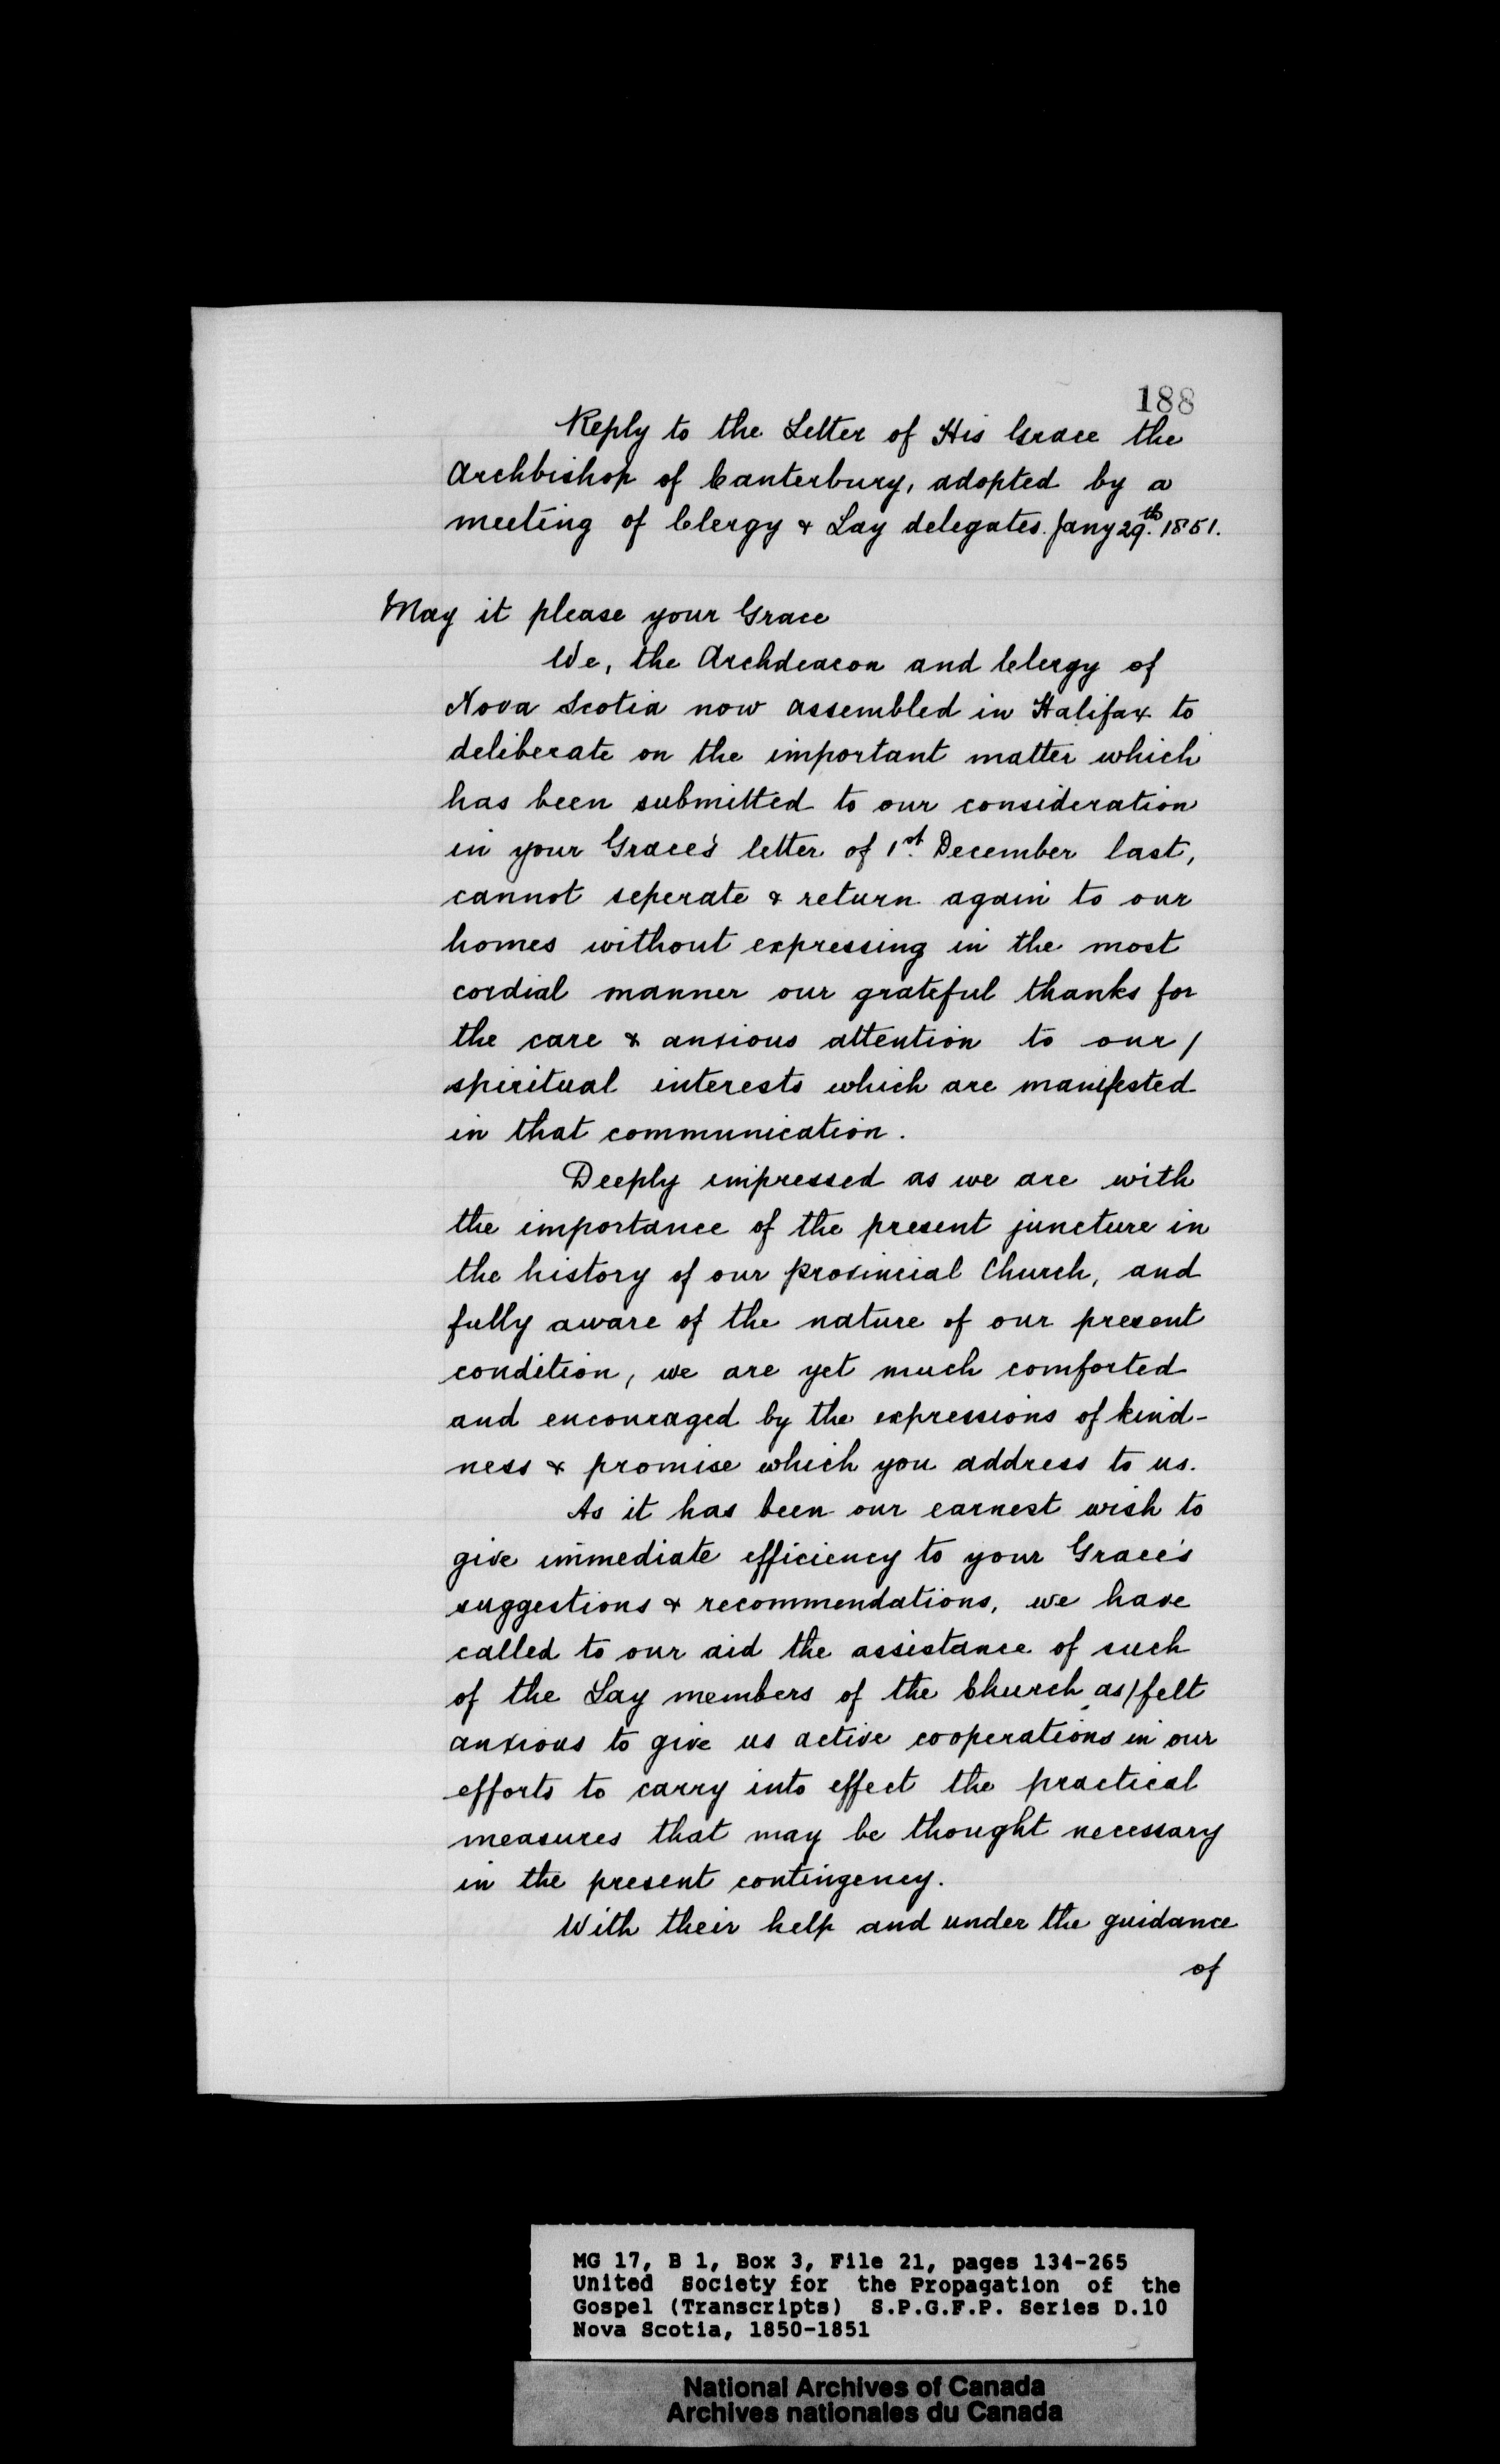 188
Reply to the Letter of His Grace the
Archbishop of Canterbury, adopted by a
meeting of Clergy & Lay delegates. Jany 29th. 1851.
May it please your Grace
We, the Archdeacon and Clergy of
Nova Scotia now assembled in Halifax to
deliberate on the important matter which
has been submitted to our consideration
in your Grace's letter of 1st. December last,
cannot seperate & return again to our
homes without expressing in the most
cordial manner our grateful thanks for
the care & anxious attention to our/
spiritual interests which are manifested
in that communication.
Deeply impressed as we are with
the importance of the present juncture in
the history of our provincial Church, and
fully aware of the nature of our present
condition, we are yet much comforted
and encouraged by the expressions of kind-
ness & promise which you address to us.
As it has been our earnest wish to
give immediate efficiency to your Grace's
suggestions & recommendations, we have
called to our aid the assistance of such
of the Lay members of the Church as/felt
anxious to give us active cooperations in our
efforts to carry into effect the practical
measures that may be thought necessary
in the present contingency.
With their help and under the guidance
of
MG 17, B 1, Box 3, File 21, pages 134-265
United Society for the Propagation of the
Gospel (Transcripts) S.P.G.F.P. Series D.10
Nova Scotia, 1850-1851
National Archives of Canada
Archives nationales du Canada